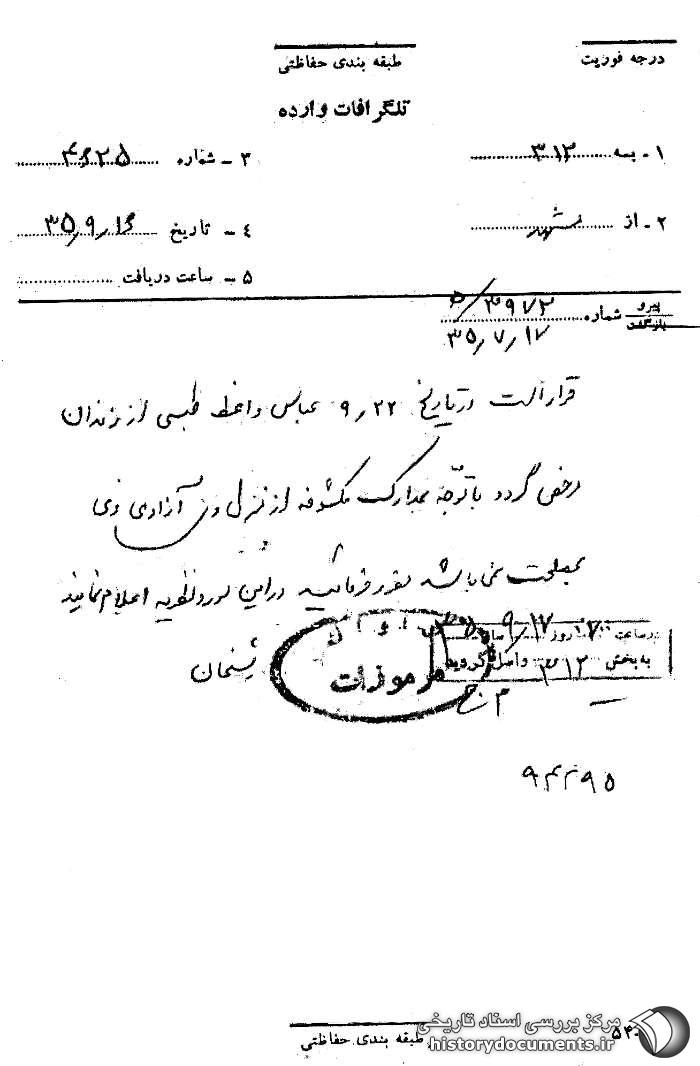 درجه فوریت
طبقه بندی حفاظتی
تلگرافات وارده
۱ - به ۳۱۲
۳ - شماره ۴۶۲۵
۲ - از مشهد
۴ - تاریخ ۳۵/۹/۱۶
۵ - ساعت دریافت
پیرو
بازگشت
شماره ۳۹۷۲/ه
۳۵/۷/۱۷
قرار است در تاریخ ۹/۲۲ عباس واعظ طبسی از زندان
مرخص گردد با توجه بمدارک مکشوفه از منزل وی آزادی وی
بمصلحت نمی باشد مقرر فرمائید در این مورد نظریه اعلام نمایند
شیخان
مرموزات
در ساعت ۱۷۰۰ روز ۹/۱۷
به بخش ۳۱۲ واصل گردید
م ج
طبقه بندی حفاظتی
۵۴۰
مرکز بررسی اسناد تاریخی
historydocuments.ir